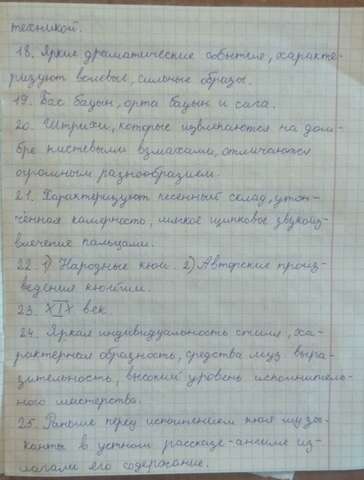 техникой.
18. Яркие драматические события, характе-
ризуют волевые, сильные образы.
19. Бас бацын, орта бацын и сага.
20. Штрихи, которые извлекаются на дом-
бре кистевыми взмахами, отличаются
огромным разнообразием.
21. Характеризуют песенный склад, утон-
чённая камерность, мягкое щипковое звукоиз-
влечение пальцами.
22. 1) Народные кюи. 2) Авторские произ-
ведения кюйши.
23. XIX век
24. Яркая индивидуальность стиля, ха-
рактерная образность, средства муз выра-
зительность, высокий уровень исполнитель-
ного мастерства.
25. Раньше перед исполнением кюя музы-
канты в устном рассказе-ангиме из-
лагали его содержание.